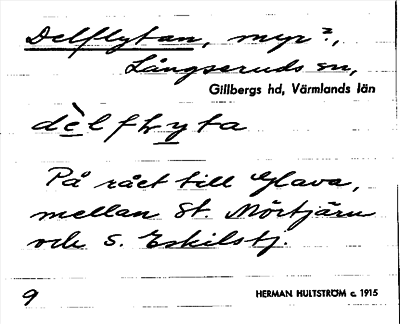 Delflytan, myr?,
Långseruds sn,
Gillbergs hd, Värmlands län
dèlflyta
På rået till Glava,
mellan St. Mörtjärn
och S. Eskilstj.
9 HERMAN HULTSTRÖM c. 1915